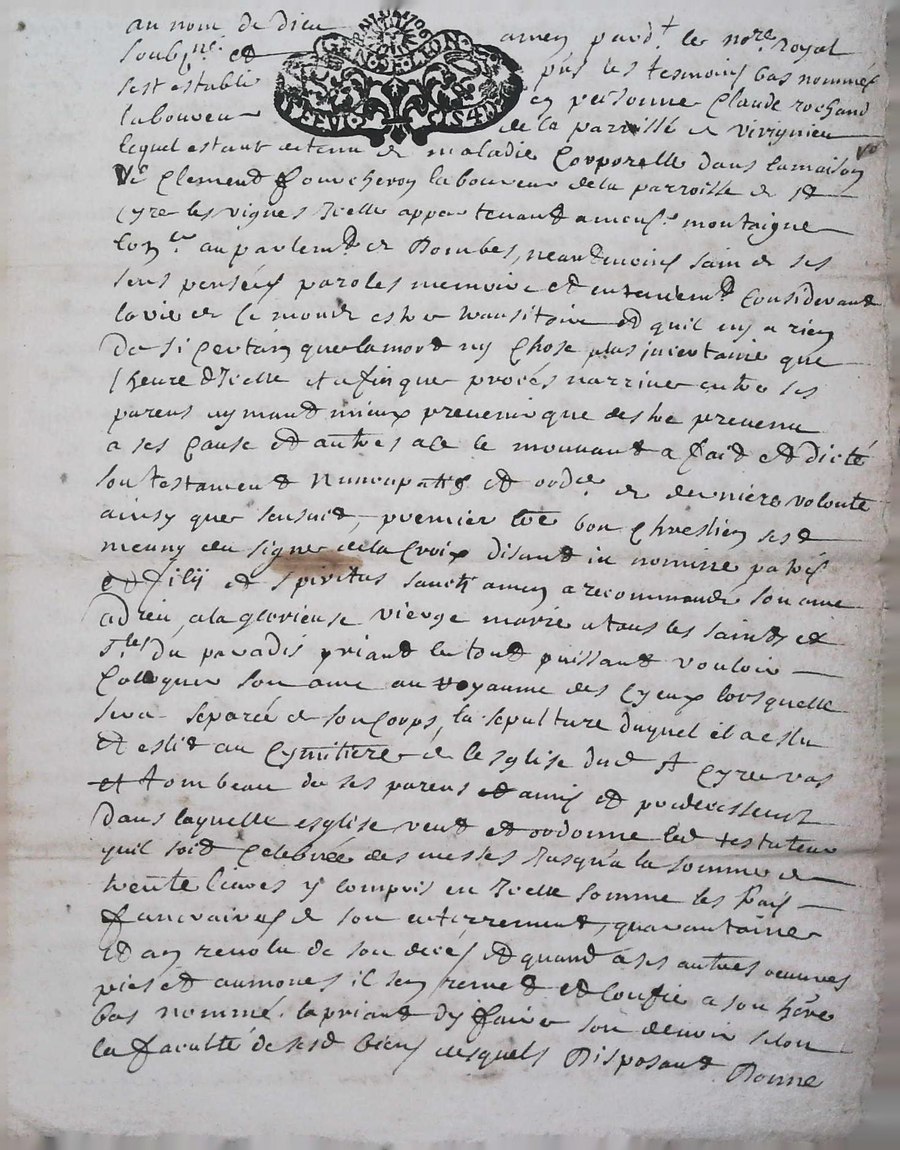 au nom de dieu amen pardt le nore Royal
soubzne et pns les tesmoins bas nommés
sest establi en personne Claude rochand
laboureur de la parroisse de virignieu
lequel estant detenu de maladie Corporelle dans lamaison
de Clement foucheron laboureur dela parroisse de st
Cyre les vignes Icelle appartenant a monsr montaigne
Coner au parlemt de Dombes, neantmoins sain de ses
sens pensées paroles memoire et entendemt Considerant
la vie de Ce monde estre transitoire et quil ny a rien
De si Certain que lamort ny Chose plus incertaine que
lheure dIcelle et afin que procés narrive entre ses
parens aymant mieux prevenir que destre prevenu
a ses Cause et autres a ce le mouvant a fait et dicté
son testament Nuncupatif et ordce de derniere volonté
ainsy que sensuit, premier Coe bon Chrestien sest
meuny du signe dela Croix disant in nomine patris
et filij et spiritus sancti amen a recommandé son ame
adieu, ala glorieuse vierge marie atous les saints et
stes du paradis priant le tout puissant vouloir
Colloquer son ame au Royaume des Cyeux lorsquelle
sera separée de son Corps, la sepulture duquel il a eslu
et eslit au Cymitiere de lesglise dud st Cyre vas
et tombeau de ses parens et amis et predecesseurs
Dans laquelle esglise veut et ordonne led testateur
quil soit Celebrée des messes Jusqu'a la somme de
trente livres y compris en Icelle somme les frais
funeraires de son enterrement, quarantaine
et an revolu de son decés et quand à ses autres oeuvres
pies et aumones il sen remet et confie a son here
bas nommé. la priant dy faire son devoir selon
la faculté de sesd biens desquels Disposant Donne